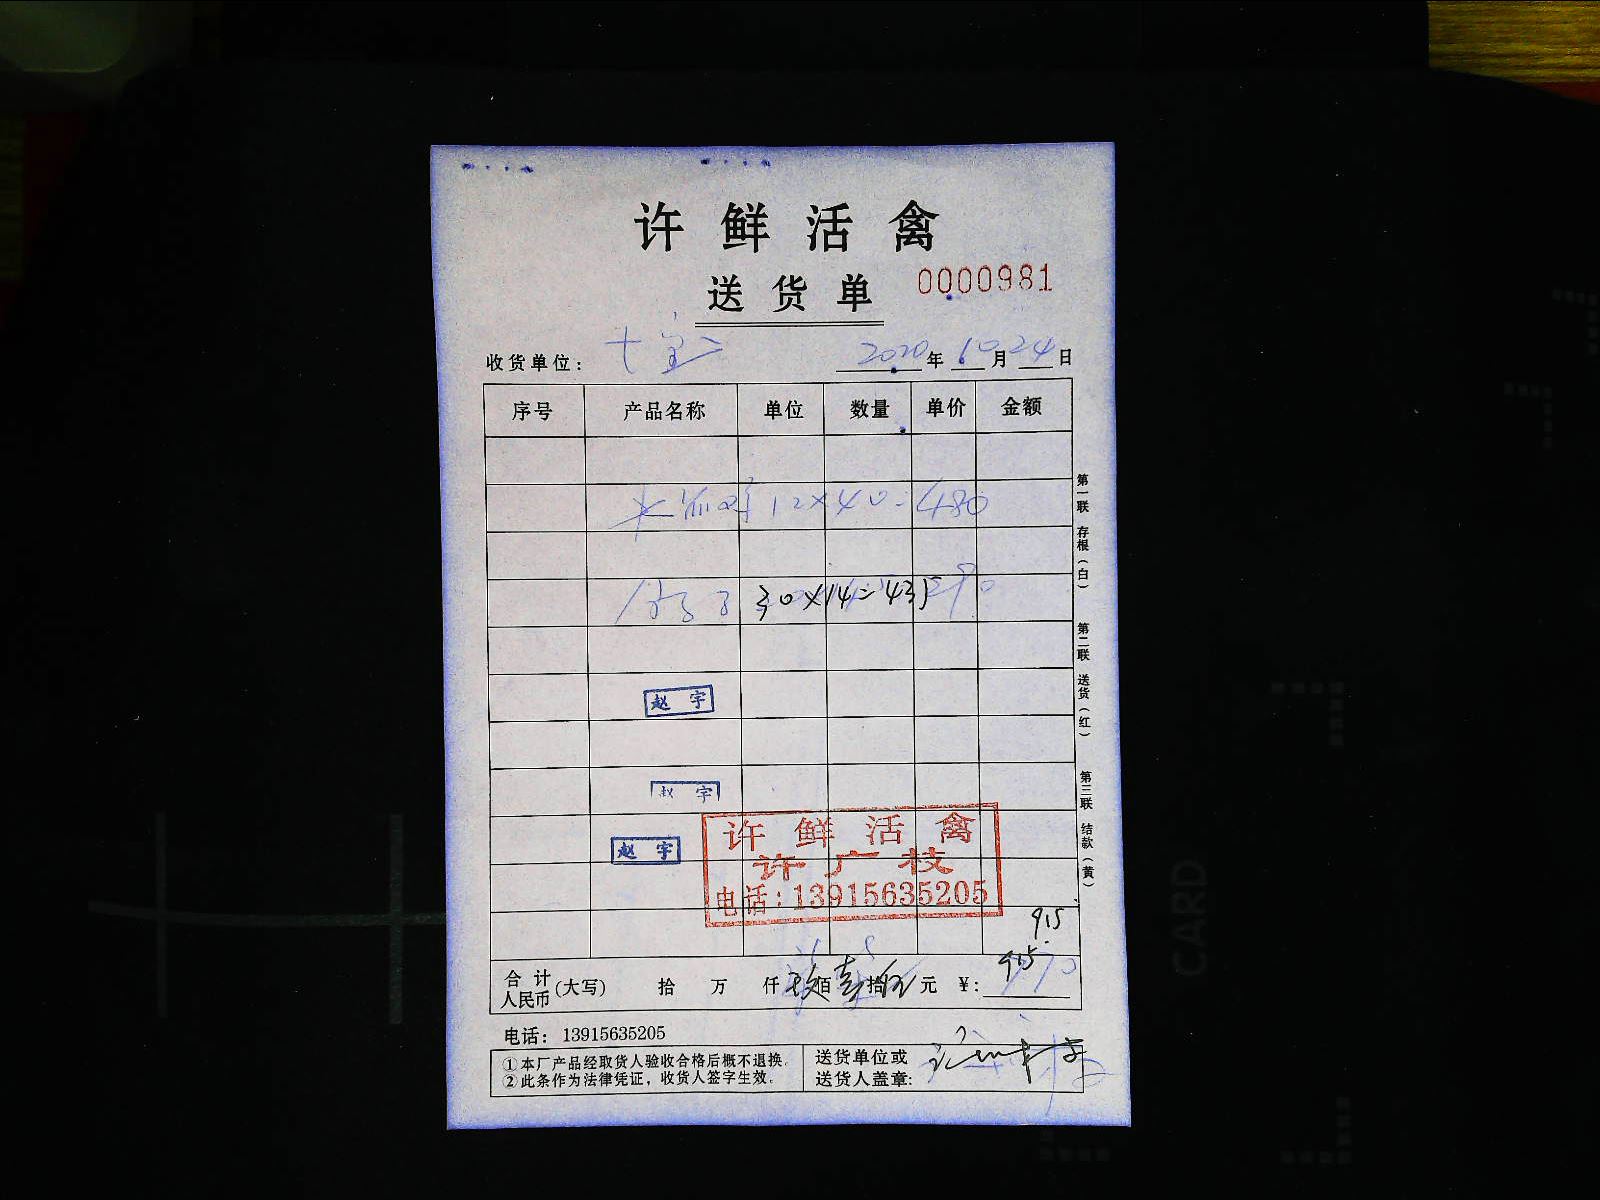 许鲜活禽
送货单 0000981
收货单位: 2020年10月24日
序号 产品名称 单位 数量 单价 金额
12×40=480
30×14=435
赵宇
赵宇
赵宇
许鲜活禽
许广枝
电话:13915635205
915
合计人民币(大写) 拾 万 仟玖佰壹拾伍元 ¥: 915
电话: 13915635205
①本厂产品经取货人验收合格后概不退换。
②此条作为法律凭证，收货人签字生效。
送货单位或
送货人盖章:
第一联 存根(白)
第二联 送货(红)
第三联 结款(黄)
CARD